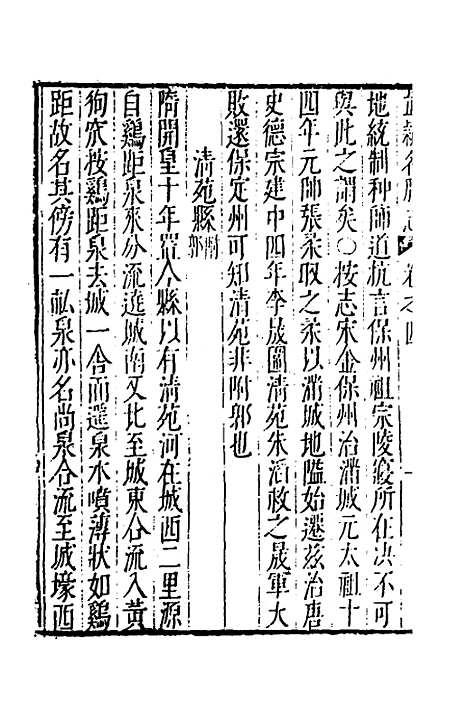 直隸名勝志 卷之四
地統制种師道抗言保州祖宗陵寢所在决不可
與此之謂矣○按志宋金保州治清苑元太祖十
四年元帥張柔取之柔以滿城地隘始遷茲治唐
史德宗建中四年李晟圍清苑朱滔救之晟軍大
敗還保定州可知清苑非附郭也
清苑縣 附郭
隋開皇十年置今縣以有清苑河在城西二里源
自鷄距泉來分流遶城南又北至城東合流入黃
狥㳄按鷄距泉去城一舍而遥泉水噴薄狀如鷄
距故名其傍有一畝泉亦名尚泉合流至城壕西